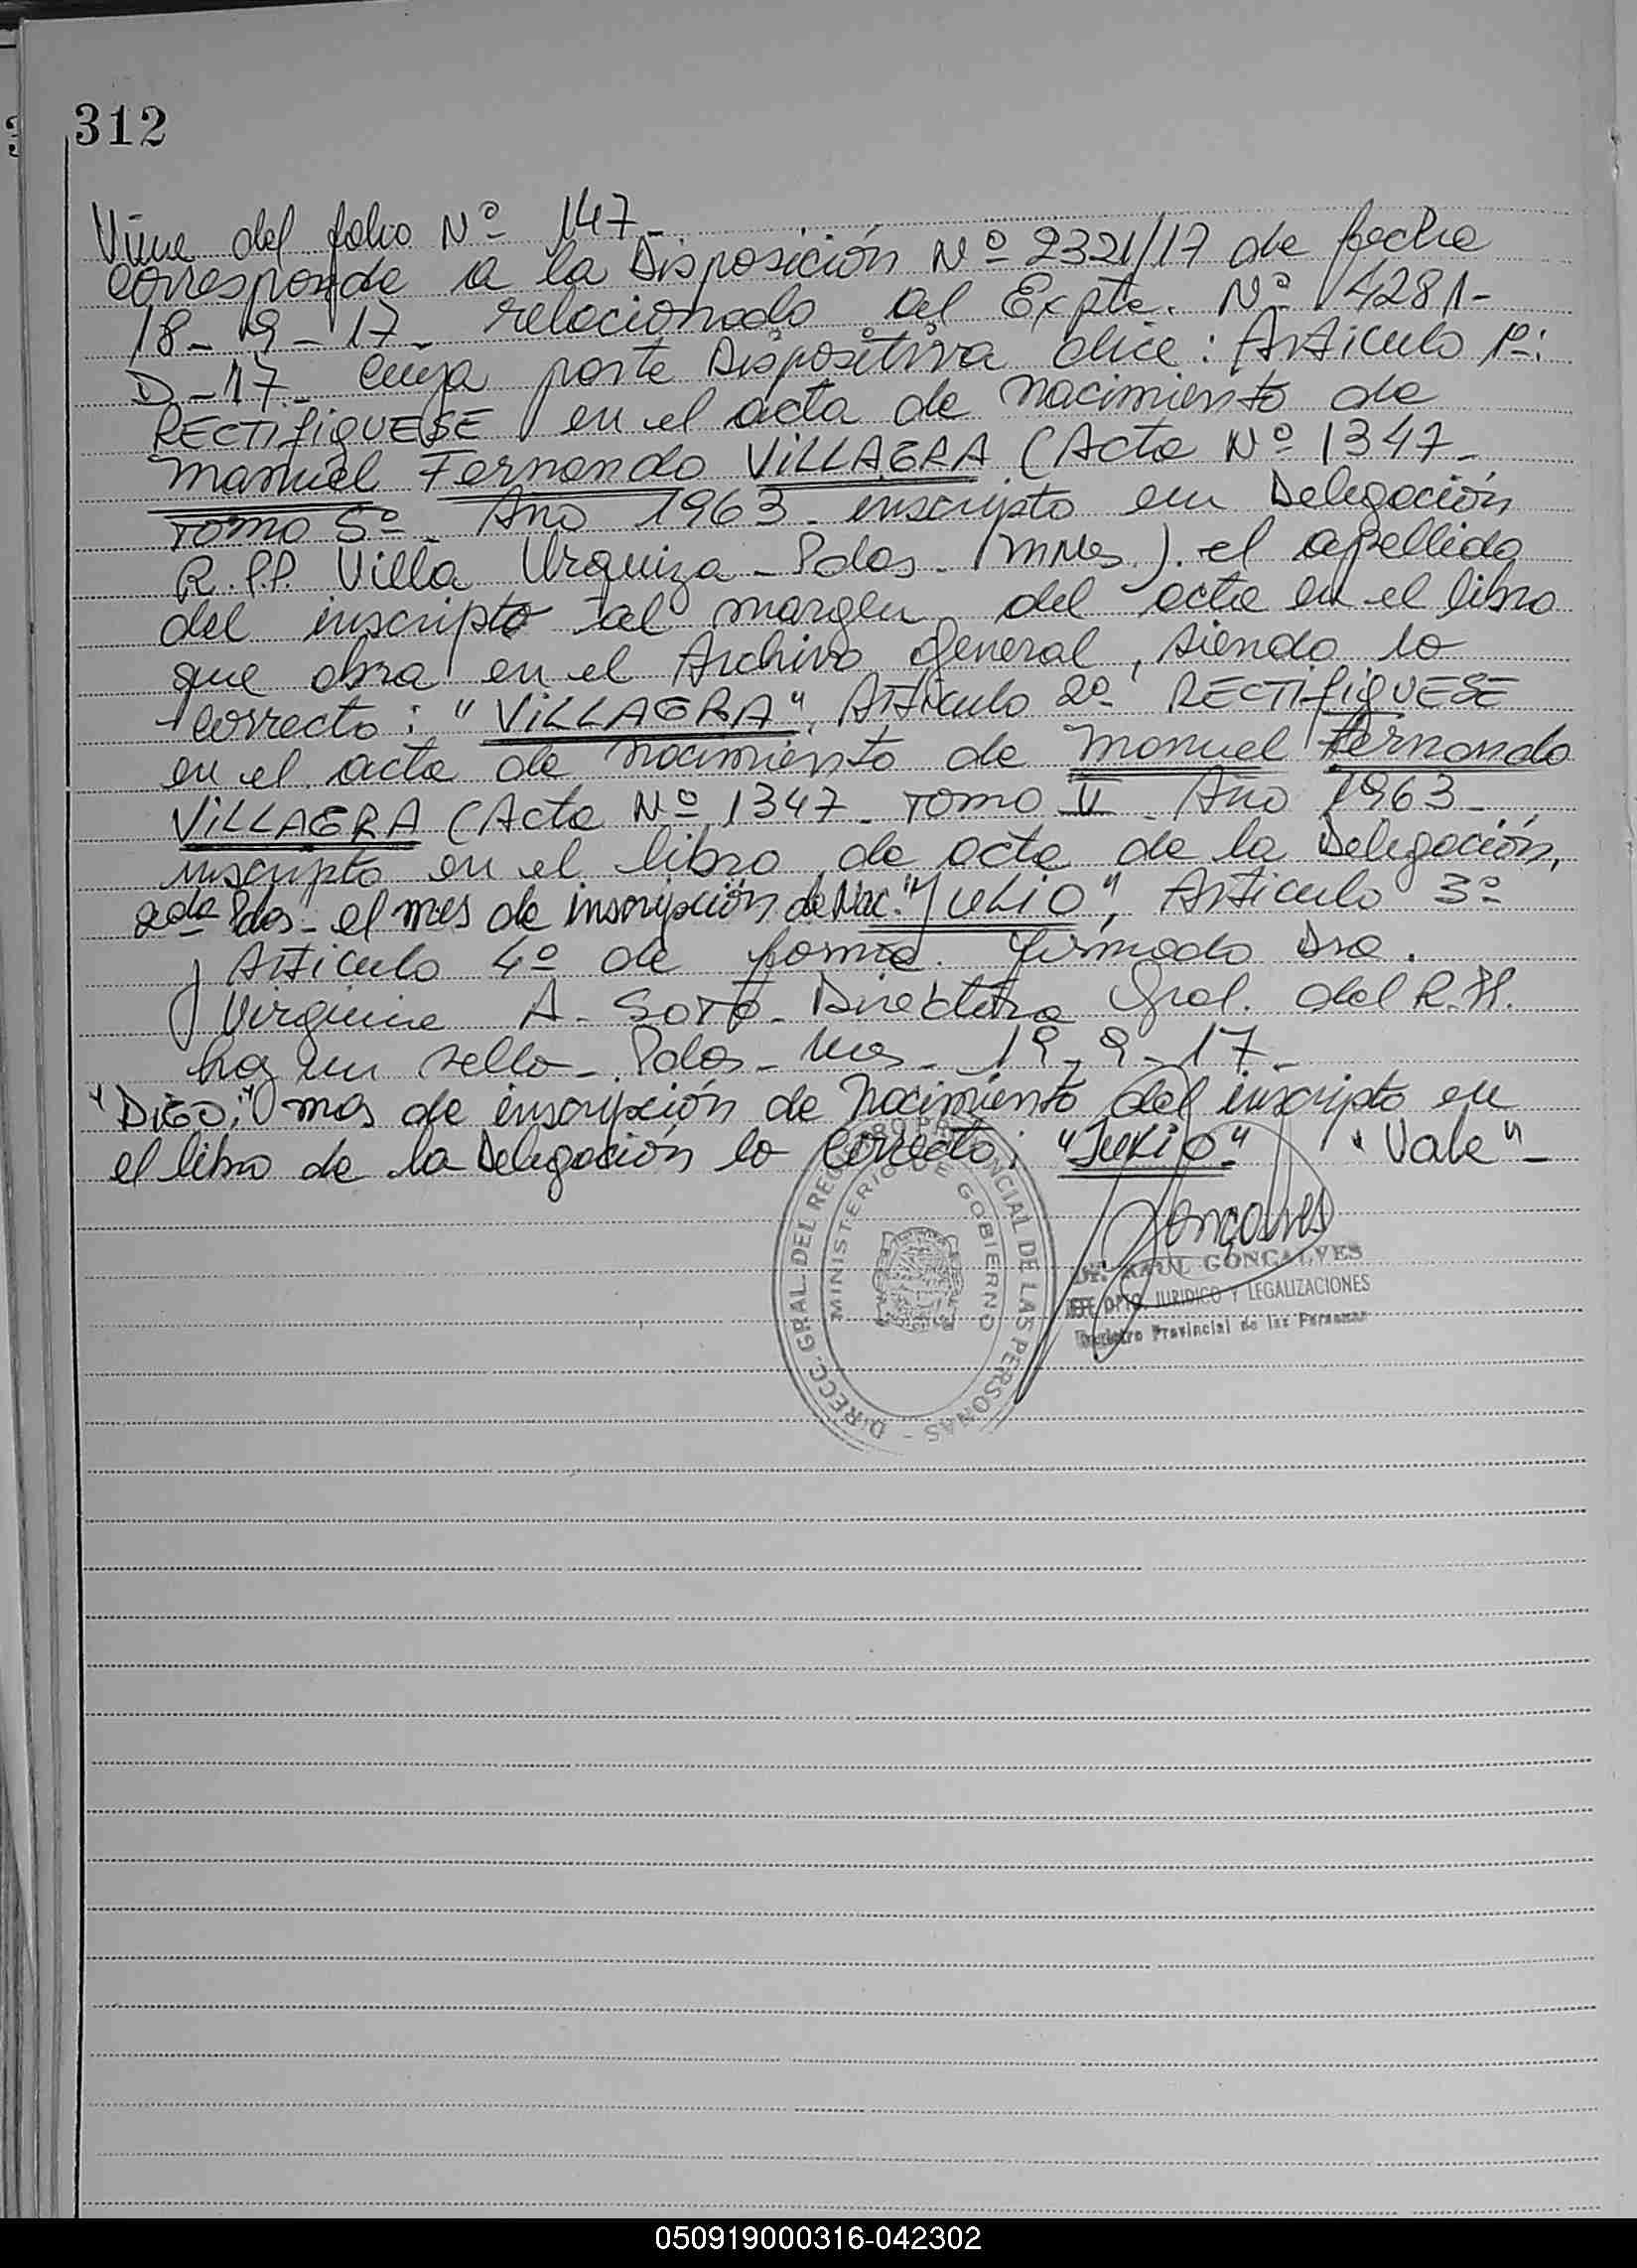 312
Viene del folio Nº 147_
corresponde a la Disposición Nº 2321/17 de fecha
18_ 9_ 17_ relacionado al Expte. Nº 4281-
D_17_ cuya parte Dispositiva dice: Articulo 1º:
RECTIFIQUESE en el acta de nacimiento de
Manuel Fernando VILLAGRA (Acta Nº 1347_
Tomo 5º_ Año 1963_ inscripto en Delegación
R.P.P. Villa Urquiza_ Pdas_ Mnes). el apellido
del inscripto al margen del acta en el libro
que obra en el Archivo General, siendo lo
correcto: "VILLAGRA", Articulo 2º RECTIFIQUESE
en el acta de nacimiento de Manuel Fernando
VILLAGRA (Acta Nº 1347_ Tomo V_ Año 1963_
inscripto en el libro de acta de la Delegación,
2da Pdas_ el mes de inscripción de Nac. "JULIO", Articulo 3º
y Articulo 4º de forma. firmado Dra.
Virginia A. Soto_ Directora Gral. del R.
hay un sello_ Pdas_ Mes_ 19_ 9_ 17_
"DIGO:" mes de inscripción de nacimiento del inscripto en
el libro de la Delegación lo correcto: "JULIO" "Vale"_
DIRECC. GRAL. DEL REGISTRO PROVINCIAL DE LAS PERSONAS -
MINISTERIO DE GOBIERNO
Goncalves
Dr. RAUL GONCALVES
JEFE DPTO. JURIDICO Y LEGALIZACIONES
Registro Provincial de las Personas
050919000316-042302